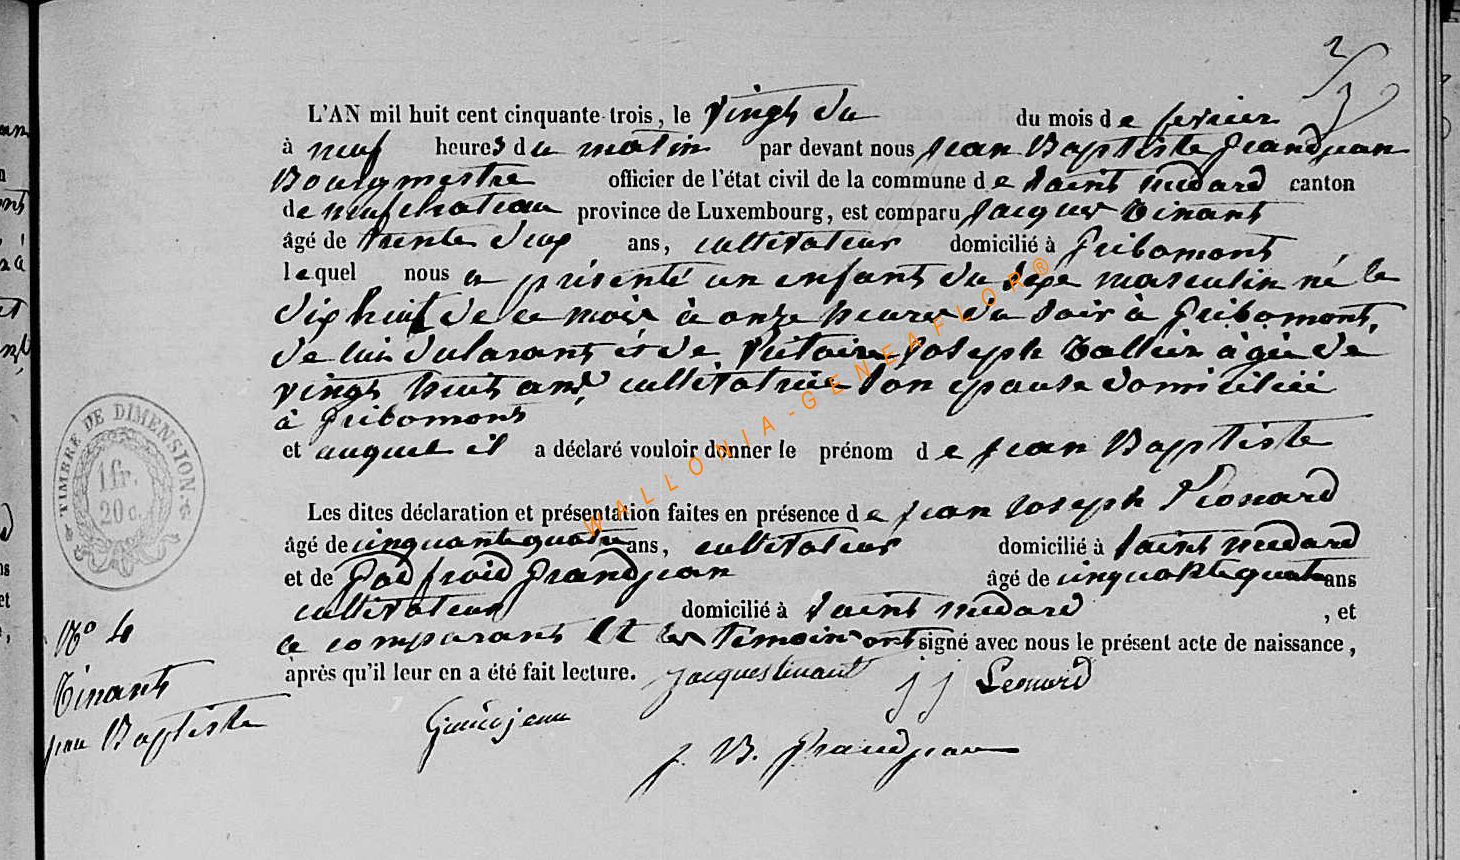 2/3
L'AN mil huit cent cinquante-trois, le vingt du du mois de fevrier
à neuf heures du matin par devant nous jean Baptiste grandjean
Bourgmestre officier de l'état civil de la commune de Saint médard canton
de neufchateau province de Luxembourg, est comparu Jacques Tinant
âgé de trente deux ans, cultivateur domicilié à gribomont,
lequel nous a présenté un enfant du sexe masculin né le
dix huit de ce mois à onze heures du soir à gribomont,
de lui déclarant et de Victoire Joseph agée de
vingt huit ans, cultivatrice son epouse domiciliée
à gribomont
et auquel il a déclaré vouloir donner le prénom de jean Baptiste
Les dites déclaration et présentation faites en présence de jean Joseph Léonard
âgé de cinquante quatre ans, cultivateur domicilié à Saint médard
et de godfroid grandjean âgé de cinquante quatre ans
cultivateur domicilié à Saint médard , et
le comparant et les témoins ont signé avec nous le présent acte de naissance,
après qu'il leur en a été fait lecture. jacques tinant j j Leonard
Grandjean
j. B. grandjean
TIMBRE DE DIMENSION.
1 fr.
20 c.
N° 4
Tinant
jean Baptiste
WALLONIA-GENEAFLOR®